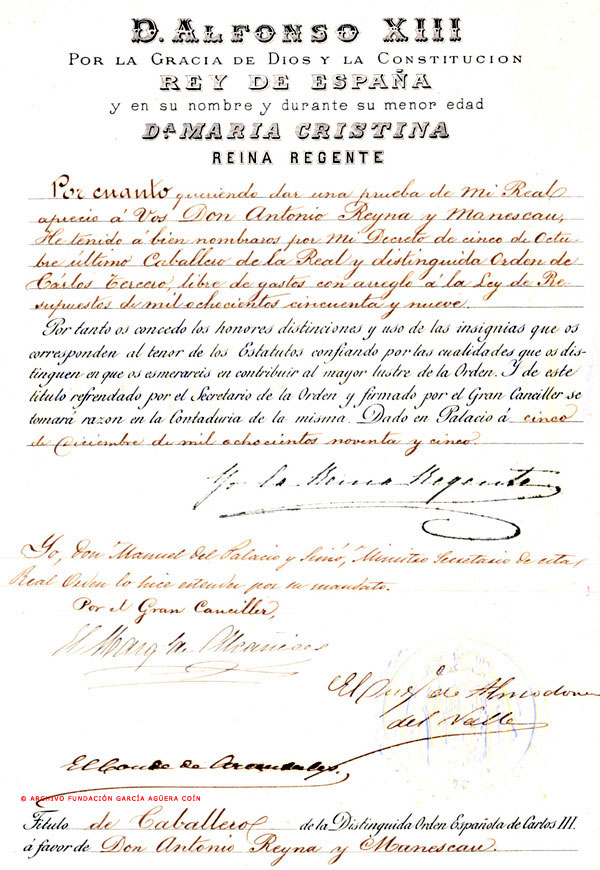 D. ALFONSO XIII
POR LA GRACIA DE DIOS Y LA CONSTITUCION
REY DE ESPAÑA
y en su nombre y durante su menor edad
Dª MARIA CRISTINA
REINA REGENTE
Por cuanto queriendo dar una prueba de Mi Real
aprecio á Vos Don Antonio Reyna y Manescau,
He tenido á bien nombraros por Mi Decreto de cinco de Octu-
bre último Caballero de la Real y distinguida Orden de
Cárlos Tercero, libre de gastos con arreglo á la Ley de Pre-
supuestos de mil ochocientos cincuenta y nueve.
Por tanto os concedo los honores distinciones y uso de las insignias que os
corresponden al tenor de los Estatutos confiando por las cualidades que os dis-
tinguen en que os esmerareis en contribuir al mayor lustre de la Orden. Y de este
titulo refrendado por el Secretario de la Orden y firmado por el Gran Canciller se
tomará razon en la Contaduria de la misma. Dado en Palacio á cinco
de Diciembre de mil ochocientos noventa y cinco.
Yo la Reina Regente
Yo, Don Manuel del Palacio y Simó, Ministro Secretario de esta
Real Orden lo hice estender por su mandato.
Por el Gran Canciller,
El Marq de Alcañices
El Duq. de Almodovar
del Valle
El Conde de
© ARCHIVO FUNDACIÓN GARCÍA AGÜERA COÍN
Titulo de Caballero de la Distinguida Orden Española de Carlos III.
á favor de Don Antonio Reyna y Manescau.